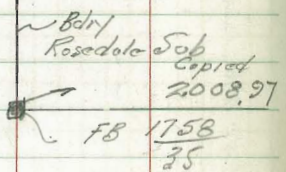 Bdry
Rosedale Job
Copied
2008.97
FB 1758
35